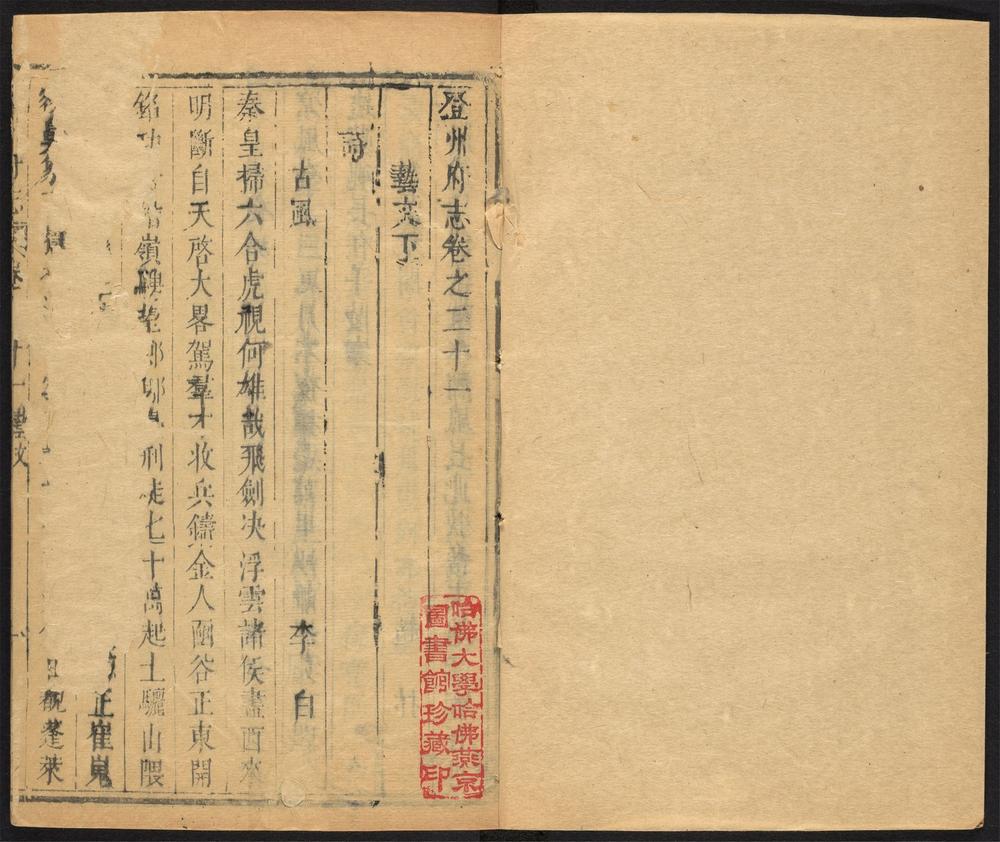 登州府志卷之二十一
藝文下
詩
古風 李白
秦皇掃六合虎視何雄哉飛劍决浮雲諸侯盡西來
明斷自天啓大畧駕羣才收兵鑄金人函谷正東開
銘 嶺騁望 刑徒七十萬起土驪山隈
正崔嵬
蓬萊
十一 藝文
哈佛大學哈佛燕京
圖書館珍藏印